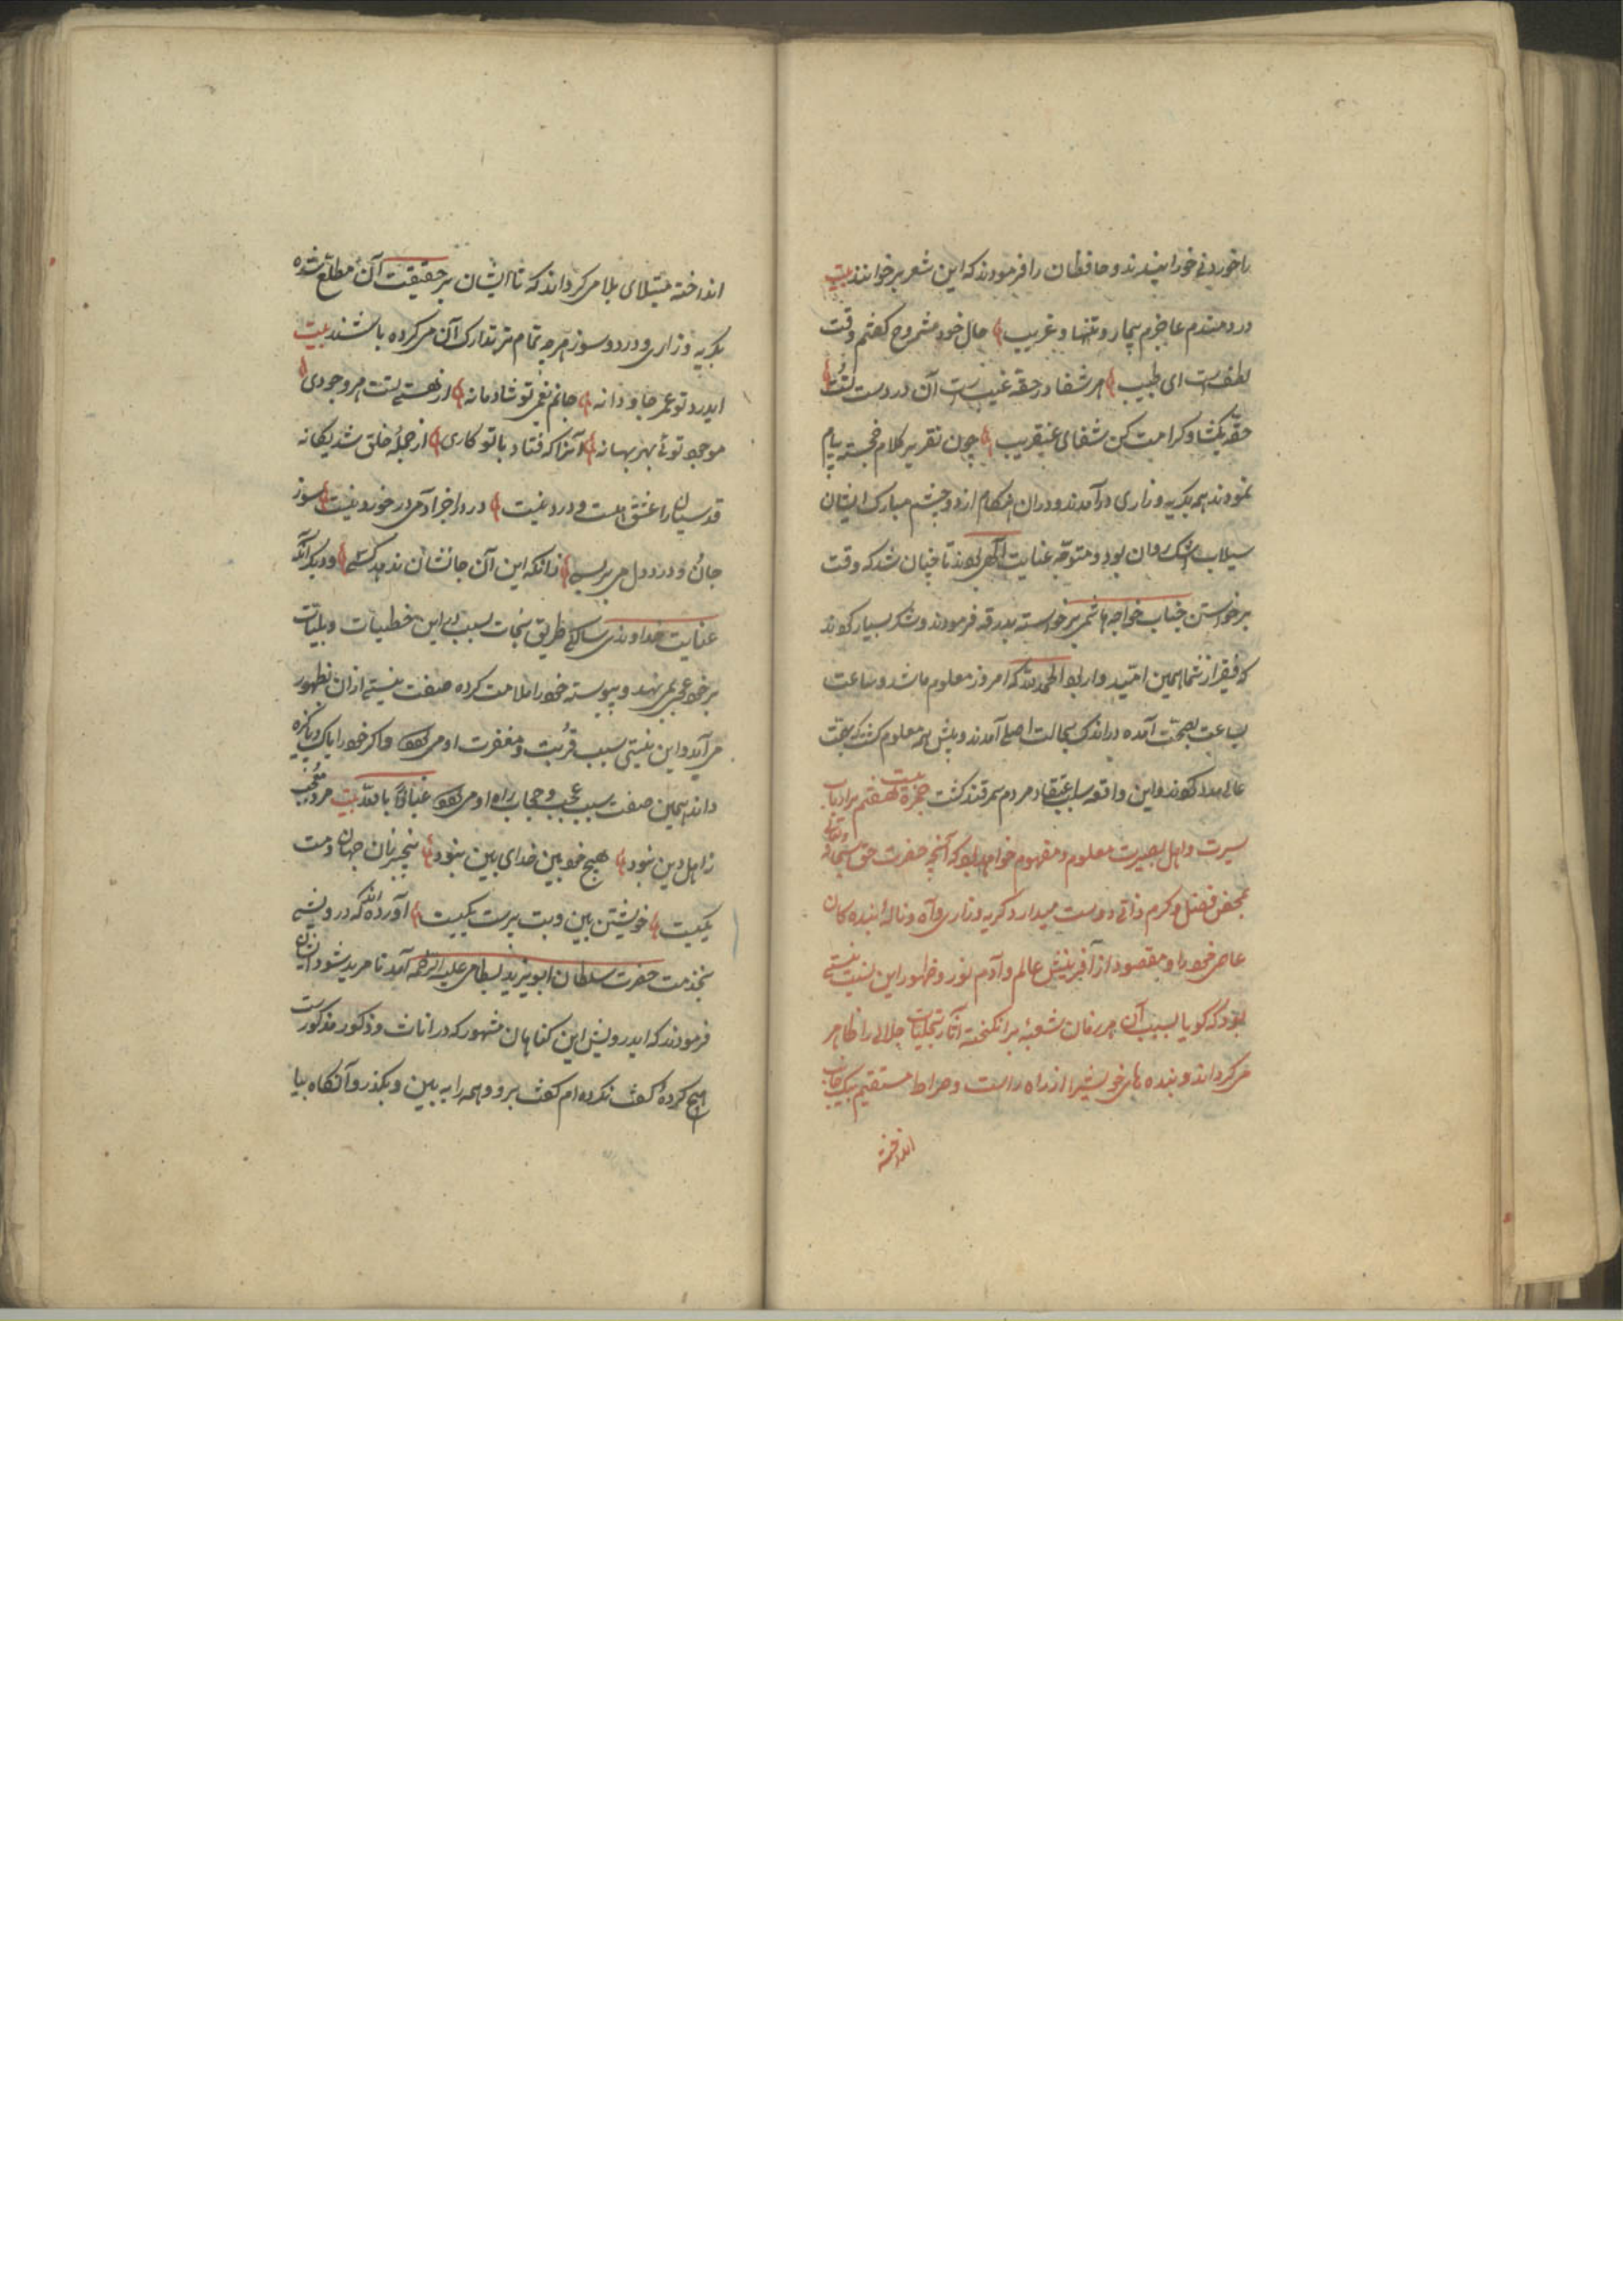 را خوردنی خورانیدند و حافظان را فرمودند که این شعر برخوانند بیت
دردمندم عاجزم بیمار و تنها و غریب حال خود مشروح گفتم وقت
لطفست ای طبیب هر شفا در حقه غیب است آن در دست تست
حقه بگشا و کرامت کن شفای عنقریب چون تقریر کلام خجسته پیام
نمودند همه بگریه و زاری درآمدند و دران هنگام از دو چشم مبارک ایشان
سیلاب اشک روان بود و متوجه عنایت الهی بودند تا چنان شد که وقت
برخواستن جناب خواجه هاشمی برخواسته بدرقه فرمودند و شکر بسیار کردند
که فقیر از شما همین امید وار بود الحمد لله که امروز معلوم ما شد و ساعت
بساعت بصحت آمده در اندک بحالت اصلی آمدند و پیش همه معلوم گشت که
عالی مدد کردند و این واقعه سبب اعتقاد مردم سمرقند گشت حجرهٔ هفتم بر ارباب
سیرت و اهل بصیرت معلوم و مفهوم خواهد بود که آنچه حضرت حق سبحانه وتعالی
بمحض فضل و کرم ذاتی دوست میدارد گریه و زاری و آه و نالهٔ بنده کان
عاصی خود را و مقصود از آفرینش عالم و آدم نور و ظهور این نسبت نیستی
بود که گویا بسبب آن هر زمان شعبهٔ برانگیخته آثار تجلیات جلالی را ظاهر
می کرداند و بنده های خویش را از راه راست و صراط مستقیم بیک جانب
انداخته
انداخته مبتلای بلا می کرداند که تا ایشان بر حقیقت آن مطلع شده
بگریه و زاری و درد و سوز هر چه تمام تر تدارک آن می کرده باشند بیت
ایدرد تو عمر جاودانه جانم بغم تو شادمانه از هستی تست هر وجودی
موجود توئی بهر بهانه آنرا که فتاد با تو کاری از جملهٔ خلق شد یکانه
قدسیان را عشق هست و درد نیست درد را جز آدمی درخورد نیست سوز
جان و درد دل می بر بسی زانکه این آن جانشان ندهد کسی و دیگر آنکه
عنایت خداوندی سالک طریق نجات بسبب این خطیات و بلیات
بر خود عجبی نمی نهد و پیوسته خود را ملامت کرده صفت نیستی ازان بظهور
می آید و این نیستی سبب قربت و مغفرت او می شود و اگر خود را پاک و پاکیزه
داند همین صفت سبب عجب و حجاب راه او می شود عیاذا بالله بیت مرد معجب
ز اهل دین نبود هیچ خودبین خدای بین نبود
یکیست خویشتن بین و بت پرست یکیست آورده اند که درویشی
بخدمت حضرت سلطان ابو یزید بسطامی علیه الرحمه آمد تا مرید شود ایشان
فرمودند که ایدرویش این کناهان مشهور که در اناث و ذکور مذکورست
هیچ کردهٔ گفت نکرده ام گفت برو و همه را به بین و بگذر و آنگاه بیا